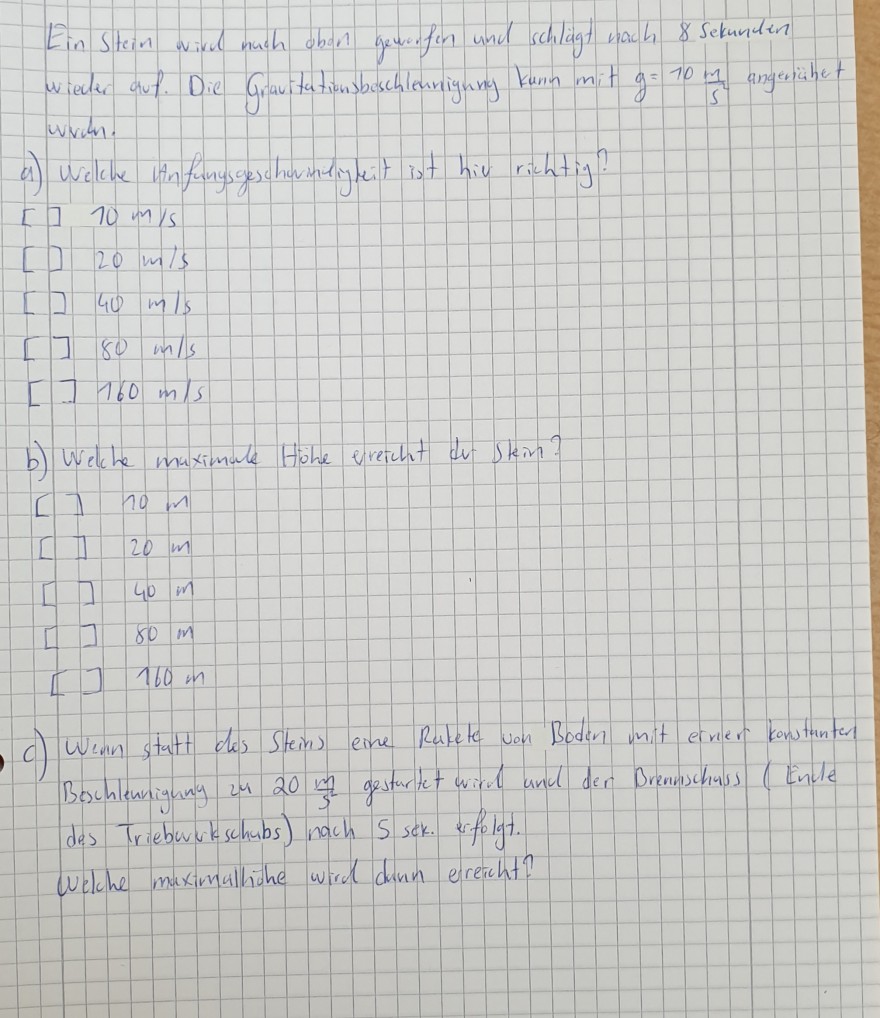 Ein Stein wird nach oben geworfen und schlägt nach 8 Sekunden
wieder auf. Die Gravitationsbeschleunigung kann mit g= 10 m/s² angenähert
werden.
a) Welche Anfangsgeschwindigkeit ist hier richtig?
[ ] 10 m/s
[ ] 20 m/s
[ ] 40 m/s
[ ] 80 m/s
[ ] 160 m/s
b) Welche maximale Höhe erreicht der Stein?
[ ] 10 m
[ ] 20 m
[ ] 40 m
[ ] 80 m
[ ] 160 m
c) Wenn statt des Steins eine Rakete von Boden mit einer konstanten
Beschleunigung zu 20 m/s² gestartet wird und der Brennschuss (Ende
des Triebwerkschubs) nach 5 sek. erfolgt.
Welche maximalhöhe wird dann erreicht?